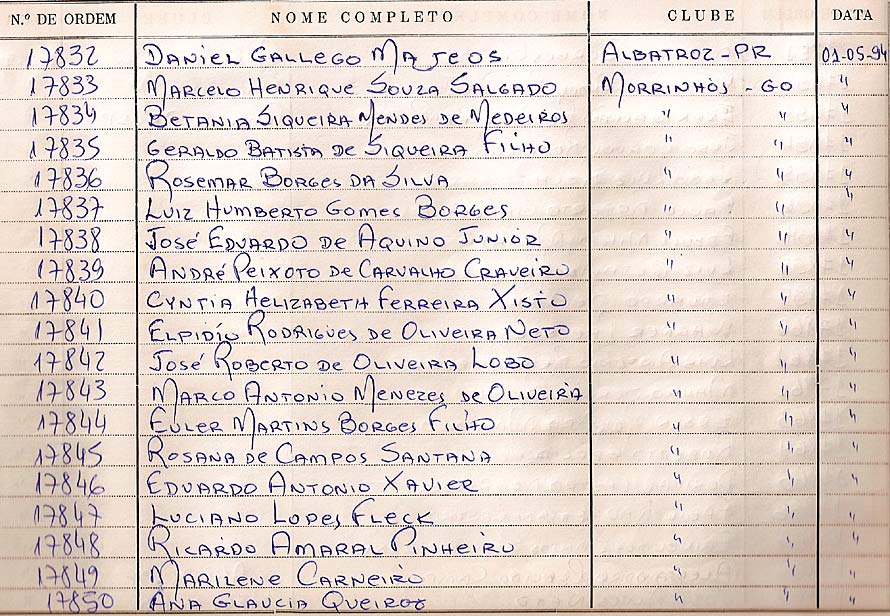 N.º DE ORDEM NOME COMPLETO CLUBE DATA
17832 DANIEL GALLEGO MATEOS ALBATROZ-PR 01-05-94
17833 MARCELO HENRIQUE SOUZA SALGADO MORRINHOS - GO "
17834 BETANIA SIQUEIRA MENDES DE MEDEIROS " " "
17835 GERALDO BATISTA DE SIQUEIRA FILHO " " "
17836 ROSEMAR BORGES DA SILVA " " "
17837 LUIZ HUMBERTO GOMES BORGES " " "
17838 JOSÉ EDUARDO DE AQUINO JUNIOR " " "
17839 ANDRÉ PEIXOTO DE CARVALHO CRAVEIRO " " "
17840 CYNTIA AELIZABETH FERREIRA XISTO " " "
17841 ELPIDÍO RODRIGUES DE OLIVEIRA NETO " " "
17842 JOSÉ ROBERTO DE OLIVEIRA LOBO " " "
17843 MARCO ANTONIO MENEZES DE OLIVEIRA " " "
17844 EULER MARTINS BORGES FILHO " " "
17845 ROSANA DE CAMPOS SANTANA " " "
17846 EDUARDO ANTONIO XAVIER " " "
17847 LUCIANO LOPES FLECK " " "
17848 RICARDO AMARAL PINHEIRO " " "
17849 MARILENE CARNEIRO " " "
17850 ANA GLAUCIA QUEIROZ " " "